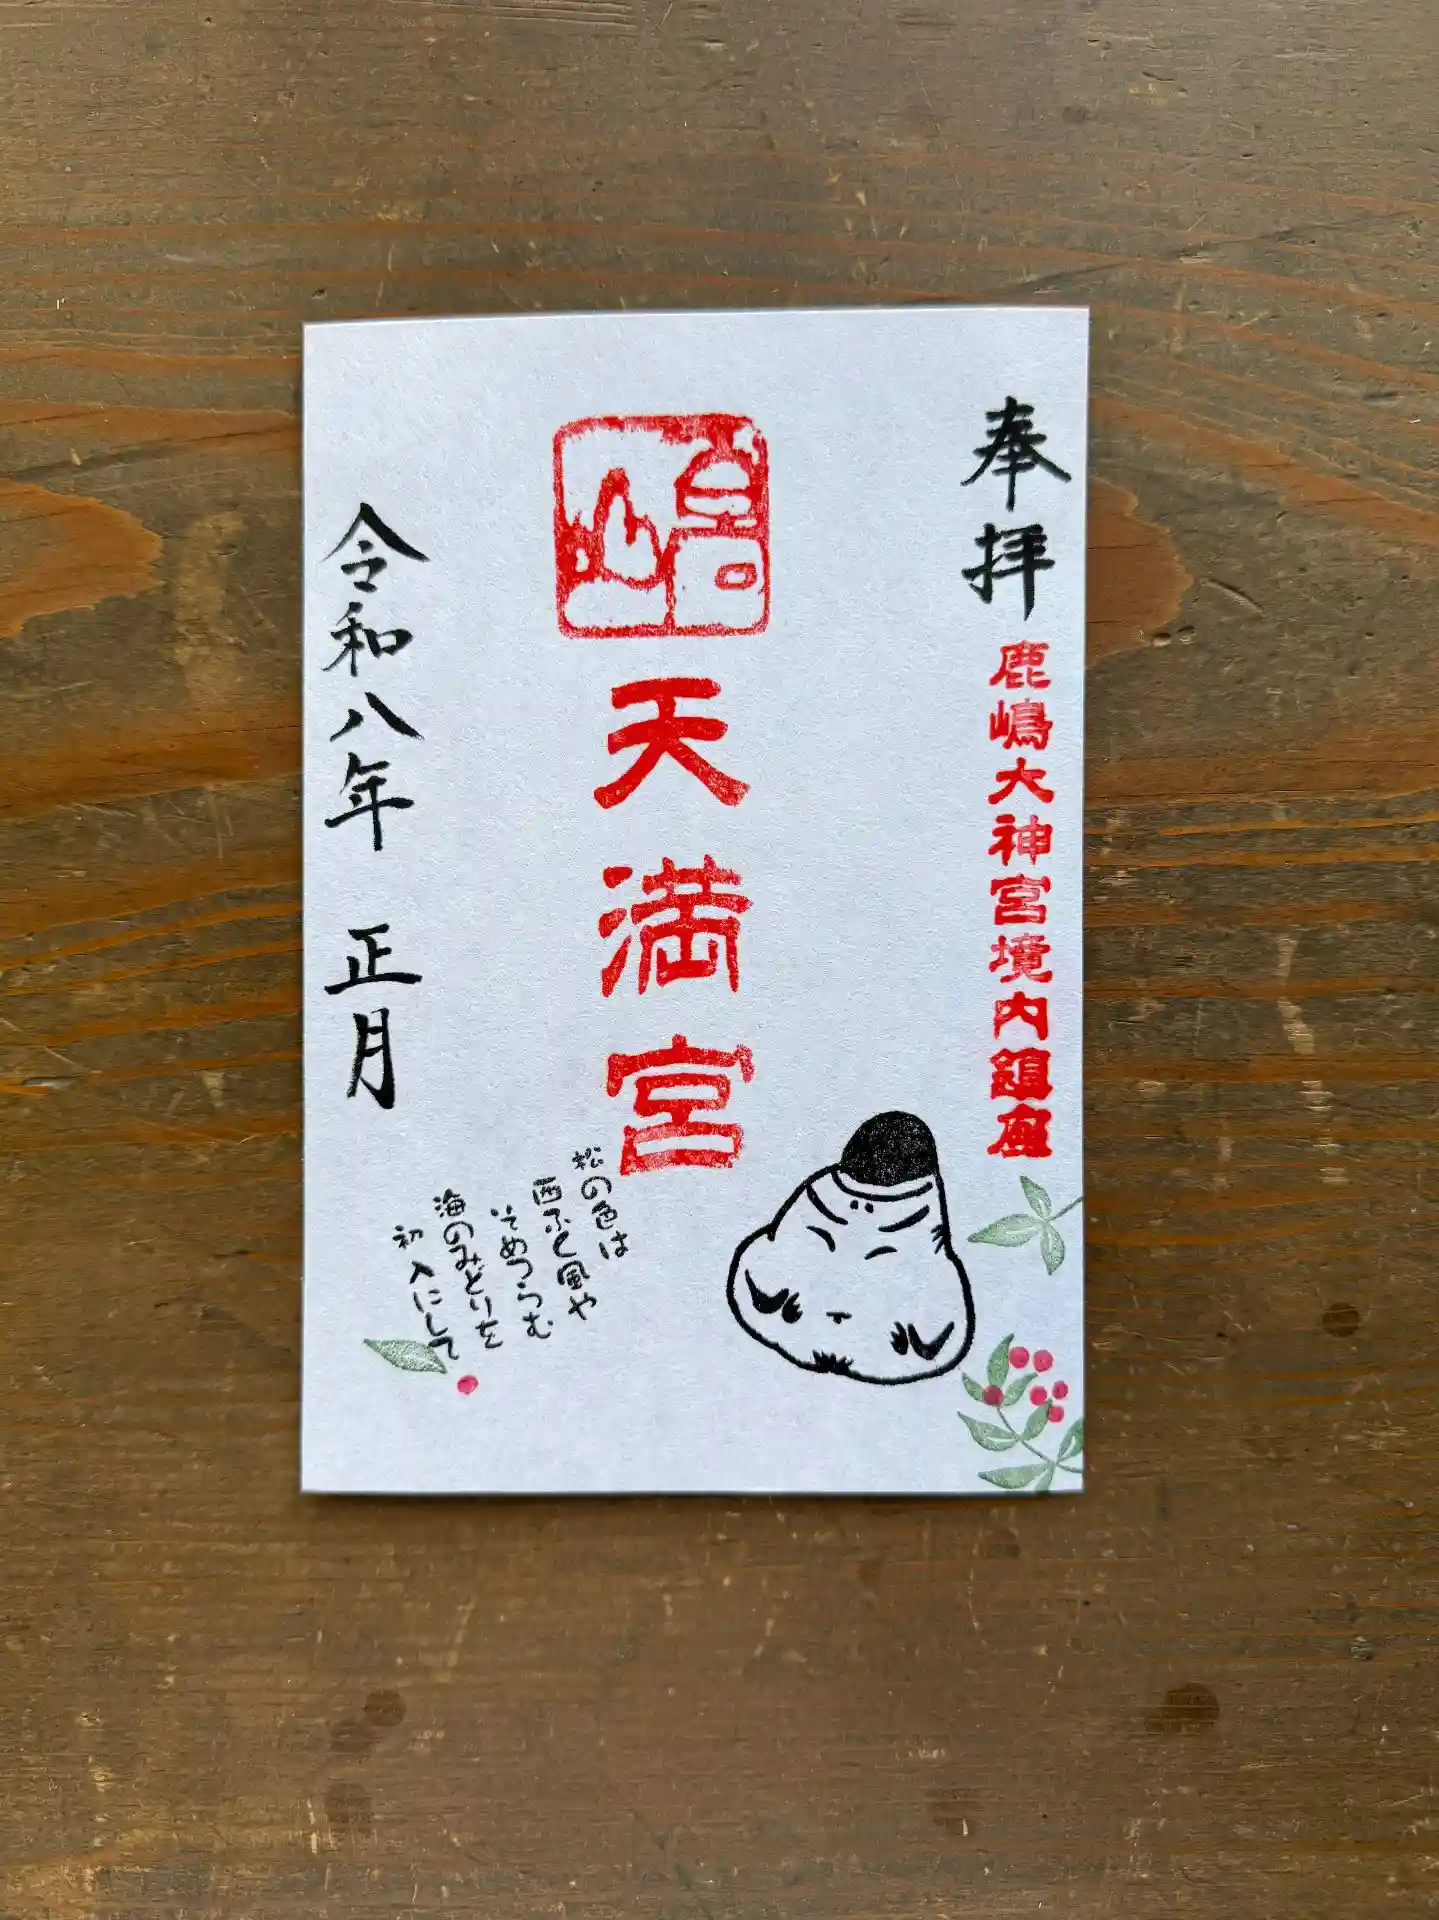 奉拝
鹿嶋大神宮境内鎮座
天満宮
松の色は
西ふく風や
そめつらむ
海のみどりを
初入にして
令和八年 正月